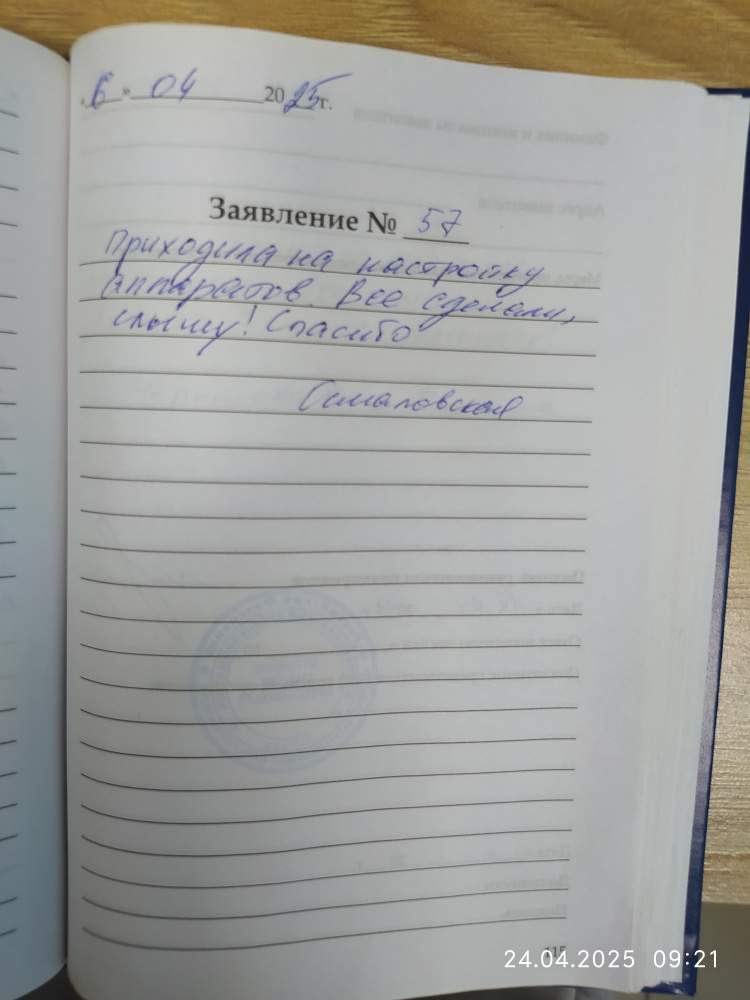 «6» 04 2025г.
Заявление № 57
Приходила на настройку
аппаратов. Все сделали,
слышу! Спасибо
115
24.04.2025 09:21